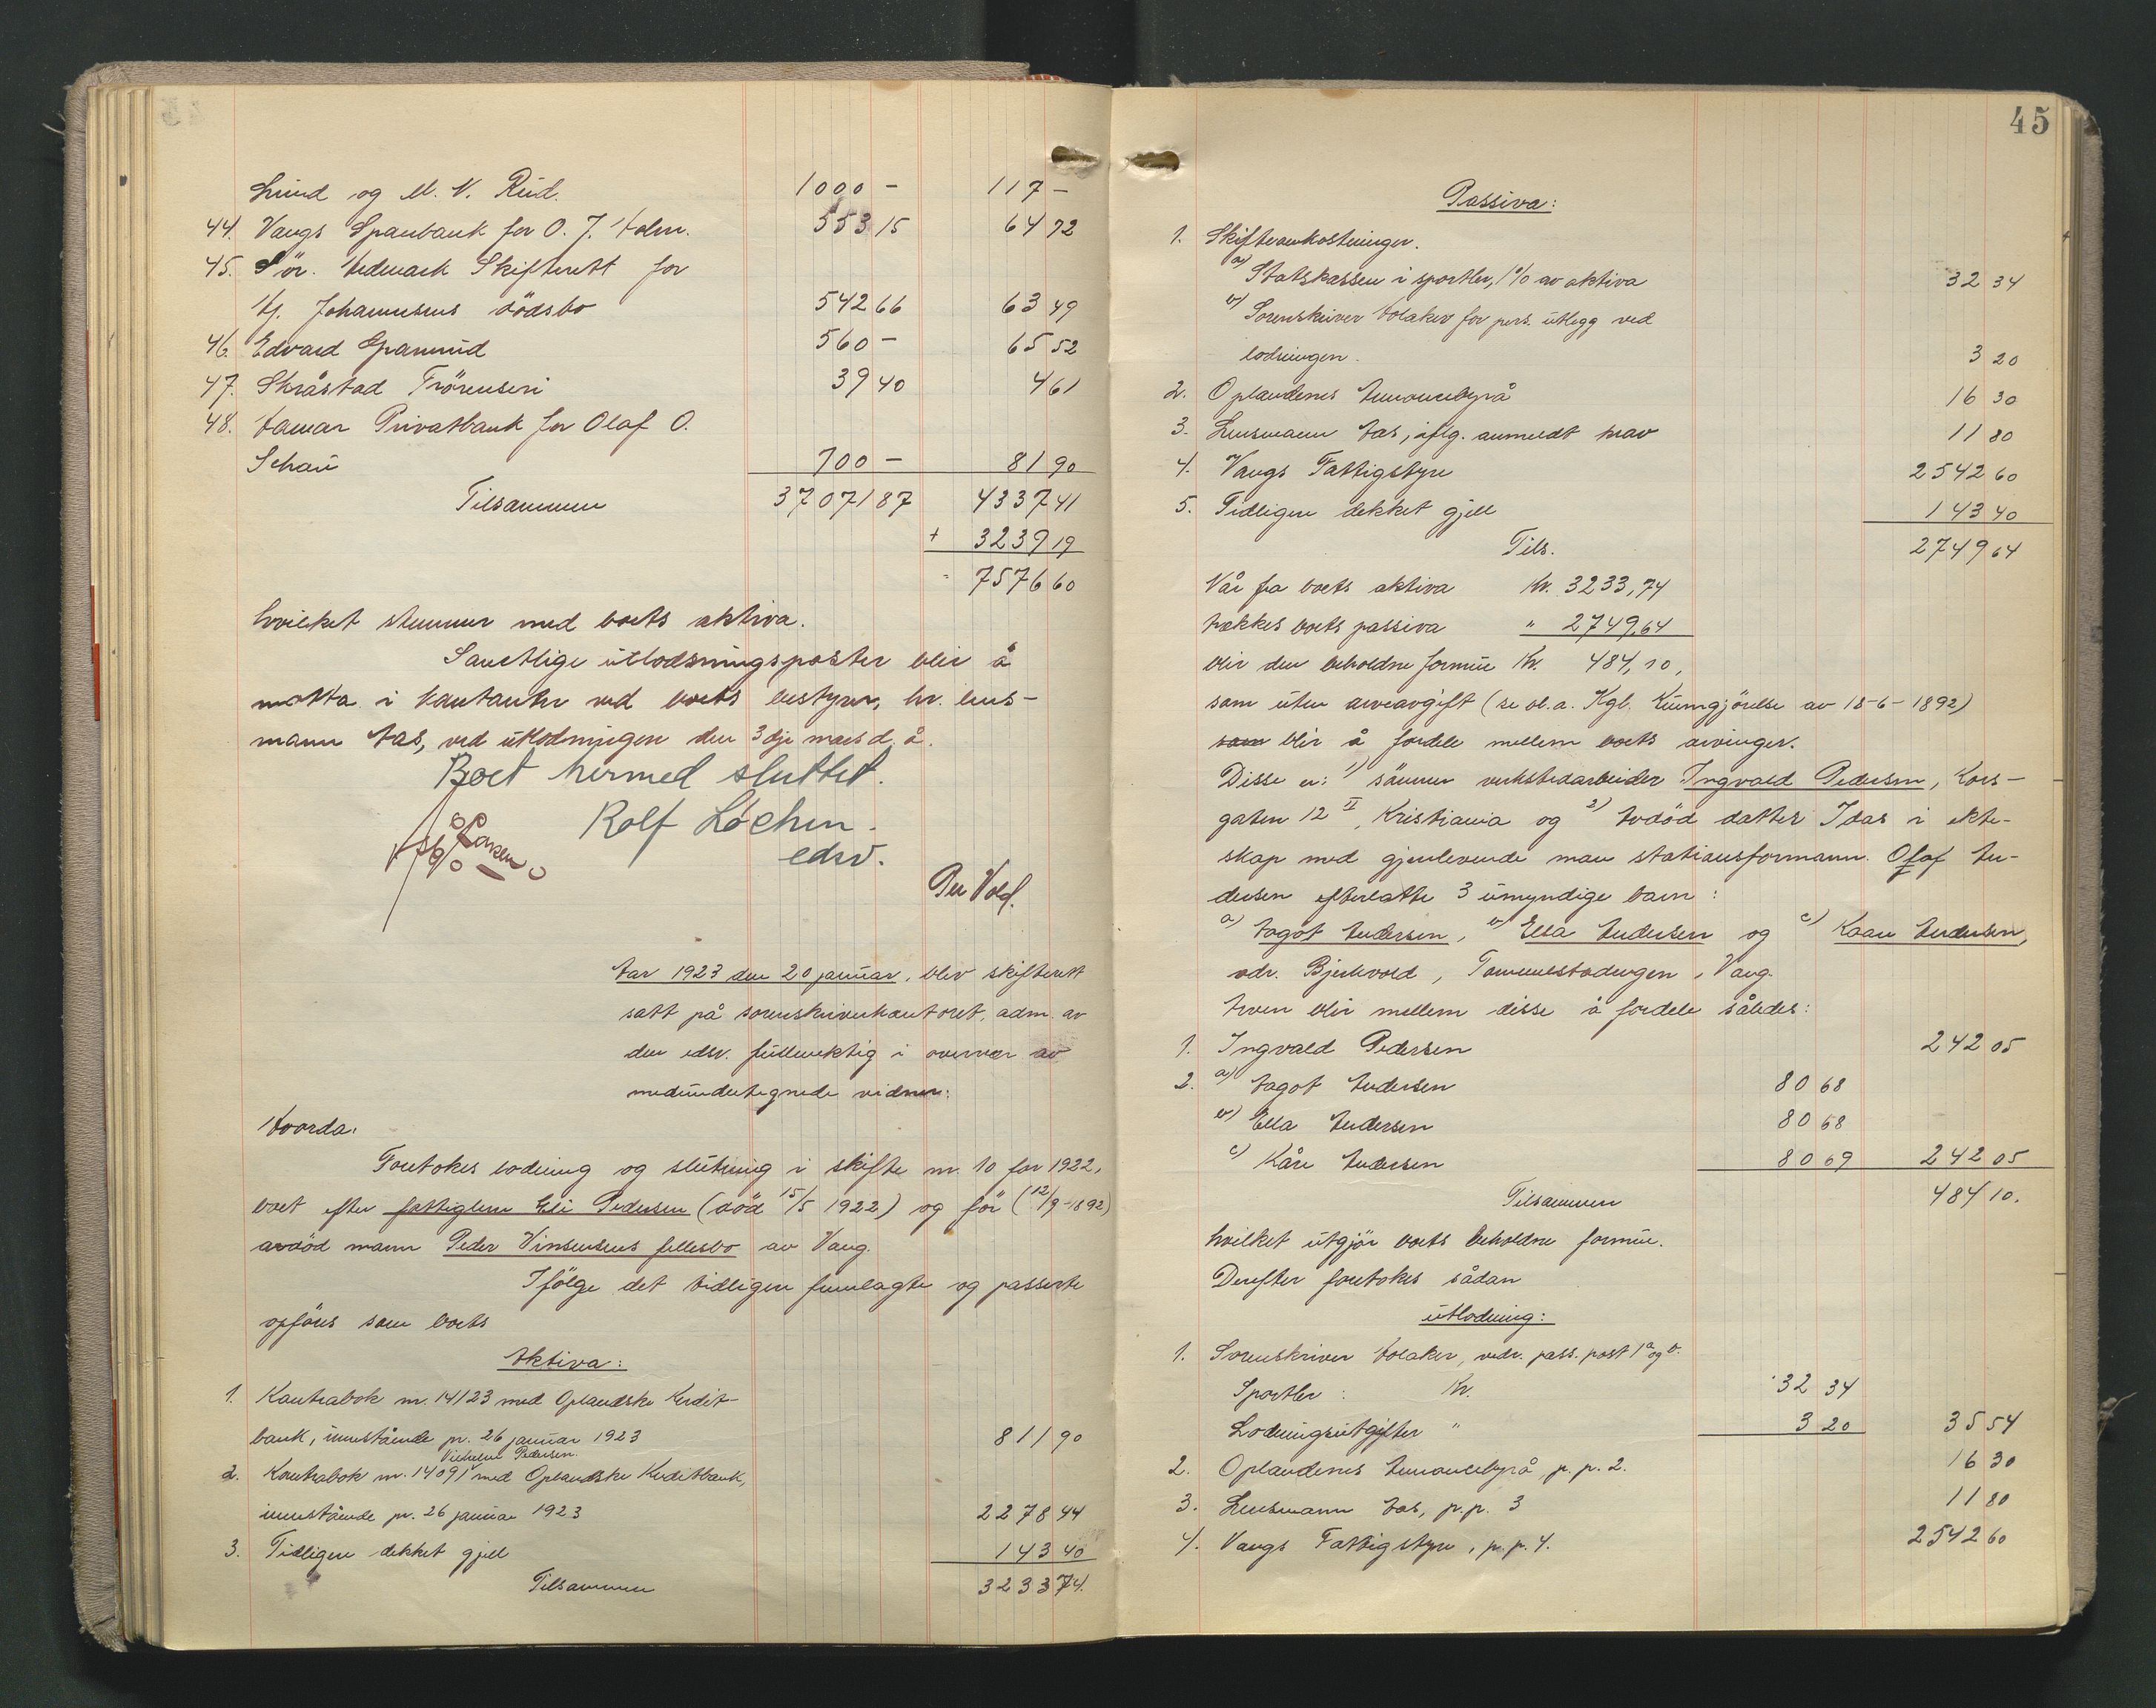 Lund og M. V. Rud. 1000 - 117 -
44. Vangs Sparebank for O. J. Holm. 553 15 64 72
45. Sör. Hedmark Skifterett for
Hj. Johannesens dödsbo 542 66 63 49
46. Edvard Gramrud 560 - 65 52
47. Skråstad Trörenseri 39 40 4 61
48. Hamar Privatbank for Olaf O.
Schau 700 - 81 90
Tilsammen 37071 87 4337 41
+ 3239 19
= 7576 60
hvilket stemmer med boets aktiva.
Samtlige utlodningsposter blir å
motta i kontanter ved boets bestyrer, hr. lens-
mann Aas, ved utlodningen den 3dje mars d. å.
Boet hermed sluttet.
Rolf Löchen.
edsv.
Per Vold.
Aar 1923 den 20 januar, blev skifterett
satt på sorenskriverkontoret, adm. av
den edsv. fullmektig i overvær av
medundertegnede vidner:
Hvorda:
Foretokes lodning og slutning i skifte nr. 10 for 1922,
boet efter fattiglem Eli Pedersen (död 15/5 1922) og för (12/9-1892)
avdöd mann Peder Vinsensens fellesbo av Vang.
Ifölge det tidligere fremlagte og passerte
opföres som boets
Aktiva:
1. Kontrabok nr. 14123 med Oplandske Kredit-
bank, innestående pr. 26 januar 1923 811 90
Vilhelm Pedersen.
2. Kontrabok nr. 14091 med Oplandske Kreditbank,
innestående pr. 26 januar 1923 2278 44
3. Tidligere dekket gjell 143 40
Tilsammen 3233 74.
45
Passiva:
1. Skifteomkostninger.
a) Statskassen i sportler, 1% av aktiva 32 34
b) Sorenskriver Aolaker for pers. utlegg ved
lodningen. 3 20
2. Oplandenes Annoncebyrå 16 30
3. Lensmann Aas, iflg. anmeldt krav 11 80
4. Vangs Fattigstyre 2542 60
5. Tidligere dekket gjell 143 40
Tils. 2749 64
Når fra boets aktiva Kr. 3233,74
trekkes boets passiva " 2749,64
blir den beholdne formue Kr. 484,10,
som uten arveavgift (se bl. a. Kgl. Kunngjörelse av 18-6-1892)
som blir å fordele mellem boets arvinger.
Disse er: 1) sönnen verkstedarbeider Ingvald Pedersen, Kors-
gaten 12 II, Kristiania og 2) avdöd datter Idas i ekte-
skap med gjenlevende man stationsformann. Olaf An-
dersen efterlatte 3 umyndige barn:
a) Aagot Andersen, b) Ella Andersen og c) Kaare Andersen,
adr. Bjerkvold, Tommelstadengen, Vang.
Arven blir mellem disse å fordele således:
1. Ingvald Pedersen 242 05
2. a) Aagot Andersen 80 68
b) Ella Andersen 80 68
c) Kåre Andersen 80 69 242 05
Tilsammen 484 10.
hvilket utgjör boets beholdne formue.
Derefter foretokes sådan
utlodning:
1. Sorenskriver Aolaker, vedr. pass. post 1 a og b.
Sportler: Kr. 32 34
Lodningsutgifter " 3 20 35 54
2. Oplandenes Annoncebyrå p. p. 2. 16 30
3. Lensmann Aas, p.p. 3 11 80
4. Vangs Fattigstyre, p. p. 4. 2542 60